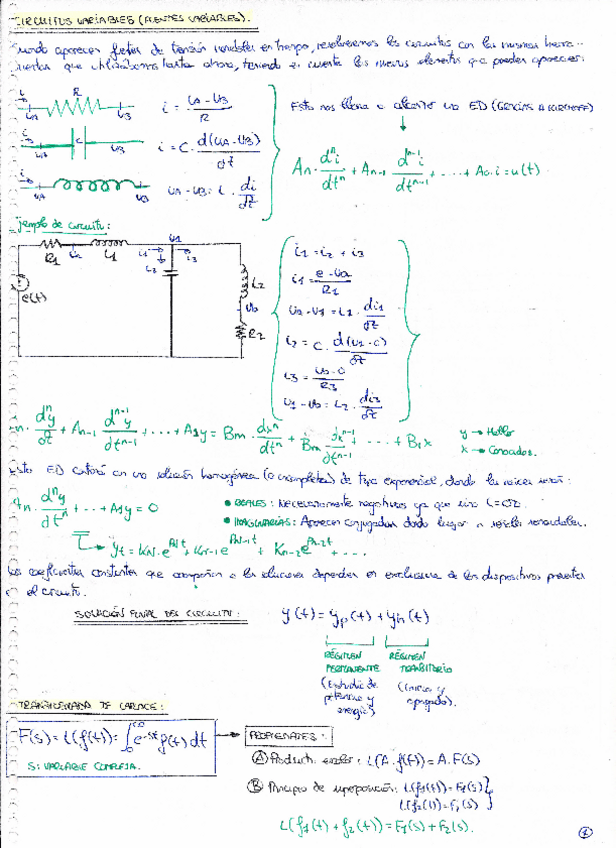 CIRCUITOS VARIABLES (FUENTES VARIABLES).
Cuando aparecen fuentes de tensión variables en tiempo, resolveremos los circuitos con las mismas herra-
mientas que utilizábamos hasta ahora, teniendo en cuenta los nuevos elementos que pueden aparecer:
i R uA uB i = (uA - uB)/R
Esto nos lleva a alcanzar una ED (GRACIAS A KIRCHHOFF)
i C uA uB i = C · d(uA - uB)/dt
An · dⁿi/dtⁿ + An-1 dⁿ⁻¹i/dtⁿ⁻¹ + ... + A0 · i = u(t)
i uA uB uA - uB = L · di/dt
Ejemplo de circuito:
R1 ua L1 i1 u1 i3 i2
e(t) L2 ub R2
i1 = i2 + i3
i1 = (e - ua)/R1
ua - u1 = L1 · di1/dt
i2 = C · d(u1 - 0)/dt
i3 = (ub - 0)/R3
u1 - ub = L2 · di3/dt
An · dⁿy/dt + An-1 dⁿ⁻¹y/dtⁿ⁻¹ + ... + A1y = Bm · dxⁿ/dtⁿ + Bm · dxⁿ⁻¹/dtⁿ⁻¹ + ... + B1x
y → Hallar
x → Conocidos.
Esta ED contará con una solución homogénea (o incompleta) de tipo exponencial, donde las raíces serán:
An · dⁿy/dtⁿ + ... + A1y = 0
• REALES: Necesariamente negativas ya que sino
• IMAGINARIAS: Aparecen conjugadas dando lugar a señales senoidales.
yt = Kn · e^(Pnt) + Kn-1 e^(Pn-1t) + Kn-2 e^(Pn-2t) + ...
Los coeficientes constantes que acompañan a las soluciones dependen en exclusiva de los dispositivos presentes
en el circuito.
SOLUCIÓN FINAL DEL CIRCUITO:
y(t) = yp(t) + yh(t)
RÉGIMEN PERMANENTE
(Estudio de potencia y energía)
RÉGIMEN TRANSITORIO
y apagado).
TRANSFORMADA DE LAPLACE:
F(s) = L(f(t)) = ∫₀^∞ e^(-st) f(t) dt
S: VARIABLE COMPLEJA.
PROPIEDADES:
Ⓐ Producto escalar: L(A · f(t)) = A · F(s)
Ⓑ Principio de superposición: L(f1(t)) = F1(s)
L(f2(t)) = F2(s)
L(f1(t) + f2(t)) = F1(s) + F2(s).
①